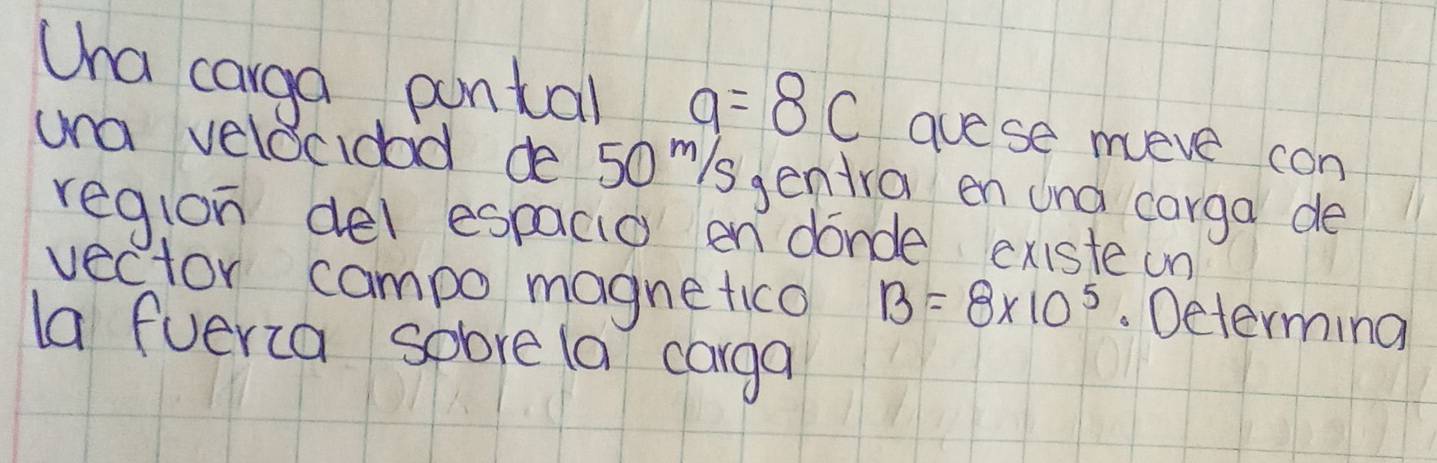 Una carga puntual q=8C que se mueve con
una velocidad de 50 m/s y entra en una carga de
región del espacio en dónde existe un
vector campo magnetico B = 8x10⁵. Determina
la fuerza sobre la carga